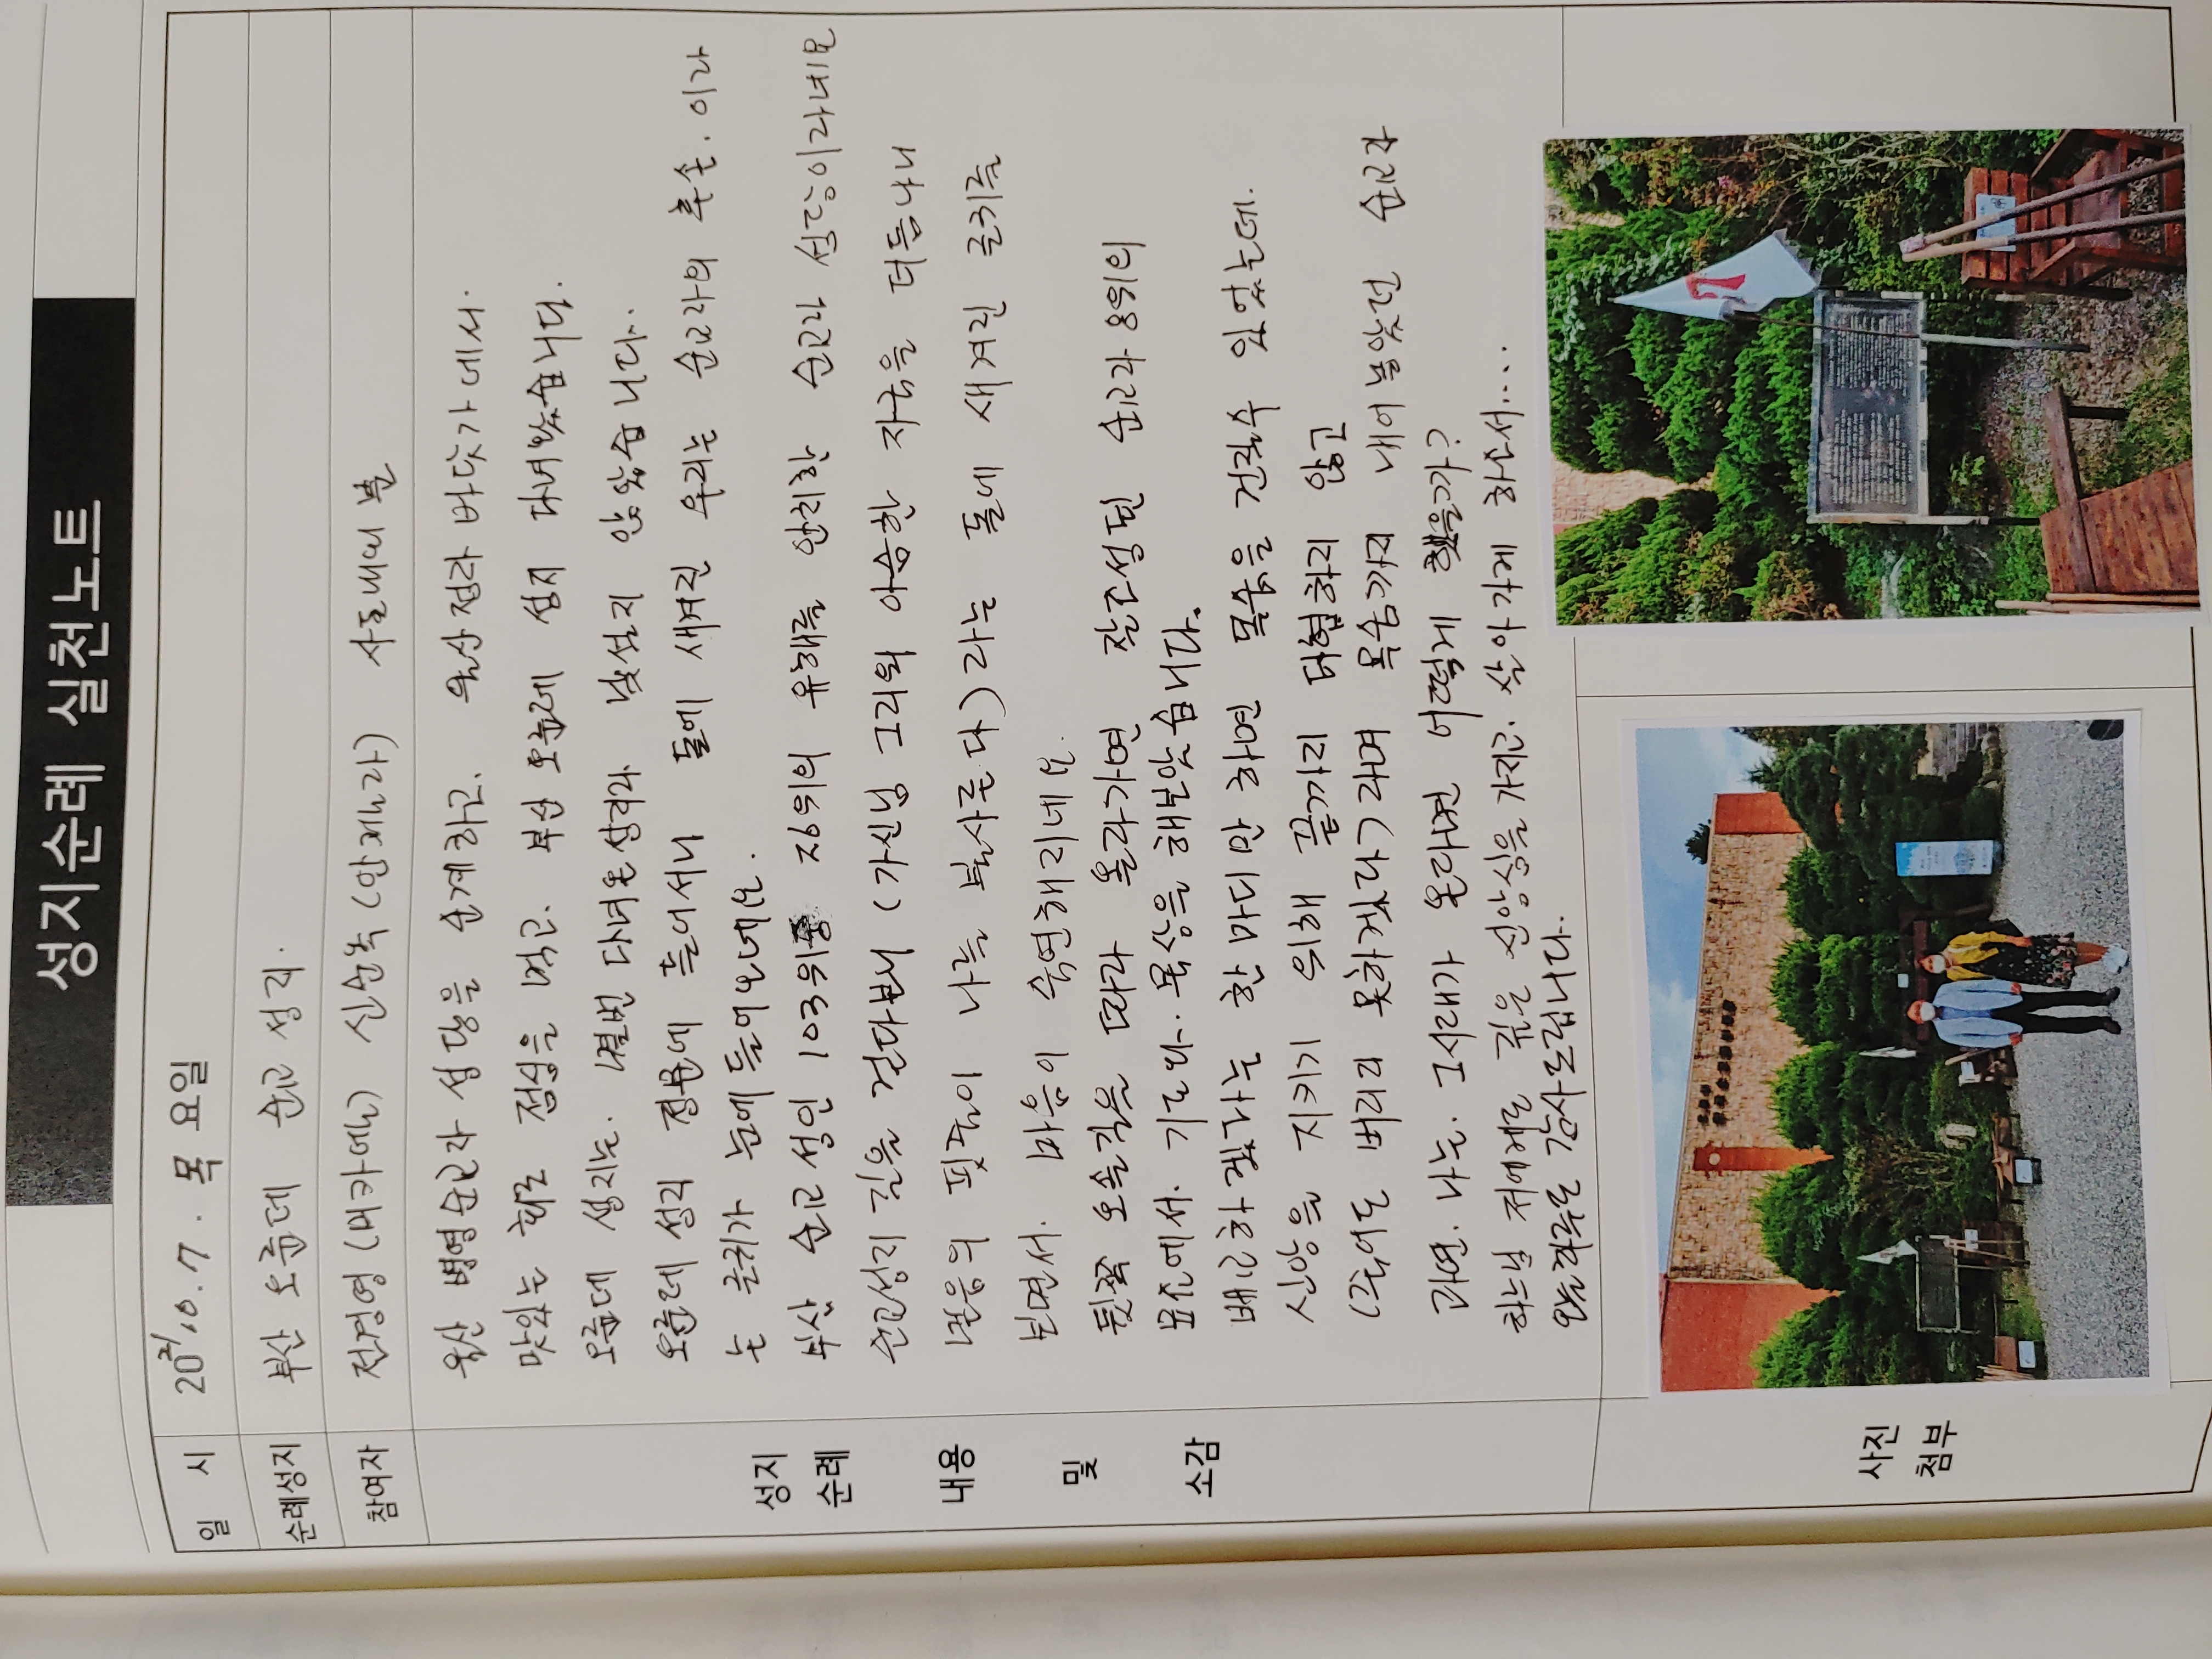 성지순례 실천노트
일 시
2021. 10. 7. 목 요일
순례성지
부산 오륜데 순교 성지.
참여자
전경영 (미카엘) 신순녹 (안젤라) 사돈내외 분
울산 병영순교자 성당을 순계하고. 울산 정자 바닷가에서.
맛있는 회로 점심을 먹고. 부산 오륜데 성지 다녀왔습니다.
오륜데 성지는. 몇번 다녀온 성지라 낯설지 않았습니다.
오륜데 성지 정문에 들어서니 돌에 새겨진 우리는 순교자의 후손. 이라
는 글귀가 눈에 들어오네요.
부산 순교 성인 103위중 26위의 유해를 안치한 순교자 성당이라네요
순교성지 길을 걷다보니 (가신님 그리워 아슴한 자국을 더듬나니
믿음의 핏줄이 나를 불사른다) 라는 돌에 새겨진 글귀를
보면서. 마음이 숙연해지네요.
뒷쪽 오솔길을 따라 올라가면 잘조성된 순교자 8위의
묘소에서. 기도와. 묵상을 해보았습니다.
배교하겠다는 한마디만 하면 목숨을 건질수 있었는데.
신앙을 지키기 위해 끝까지 타협하지 않고
(죽어도 버리지 못하겠다) 라며 목숨까지 내어놓았던 순교자
과연. 나는. 그시대가 온다면 어떻게 했을까?
하느님 저에게도 깊은 신앙심을 가지고. 살아가게 하소서....
오늘하루도 감사드립니다.
성지
순례
내용
및
소감
사진
첨부